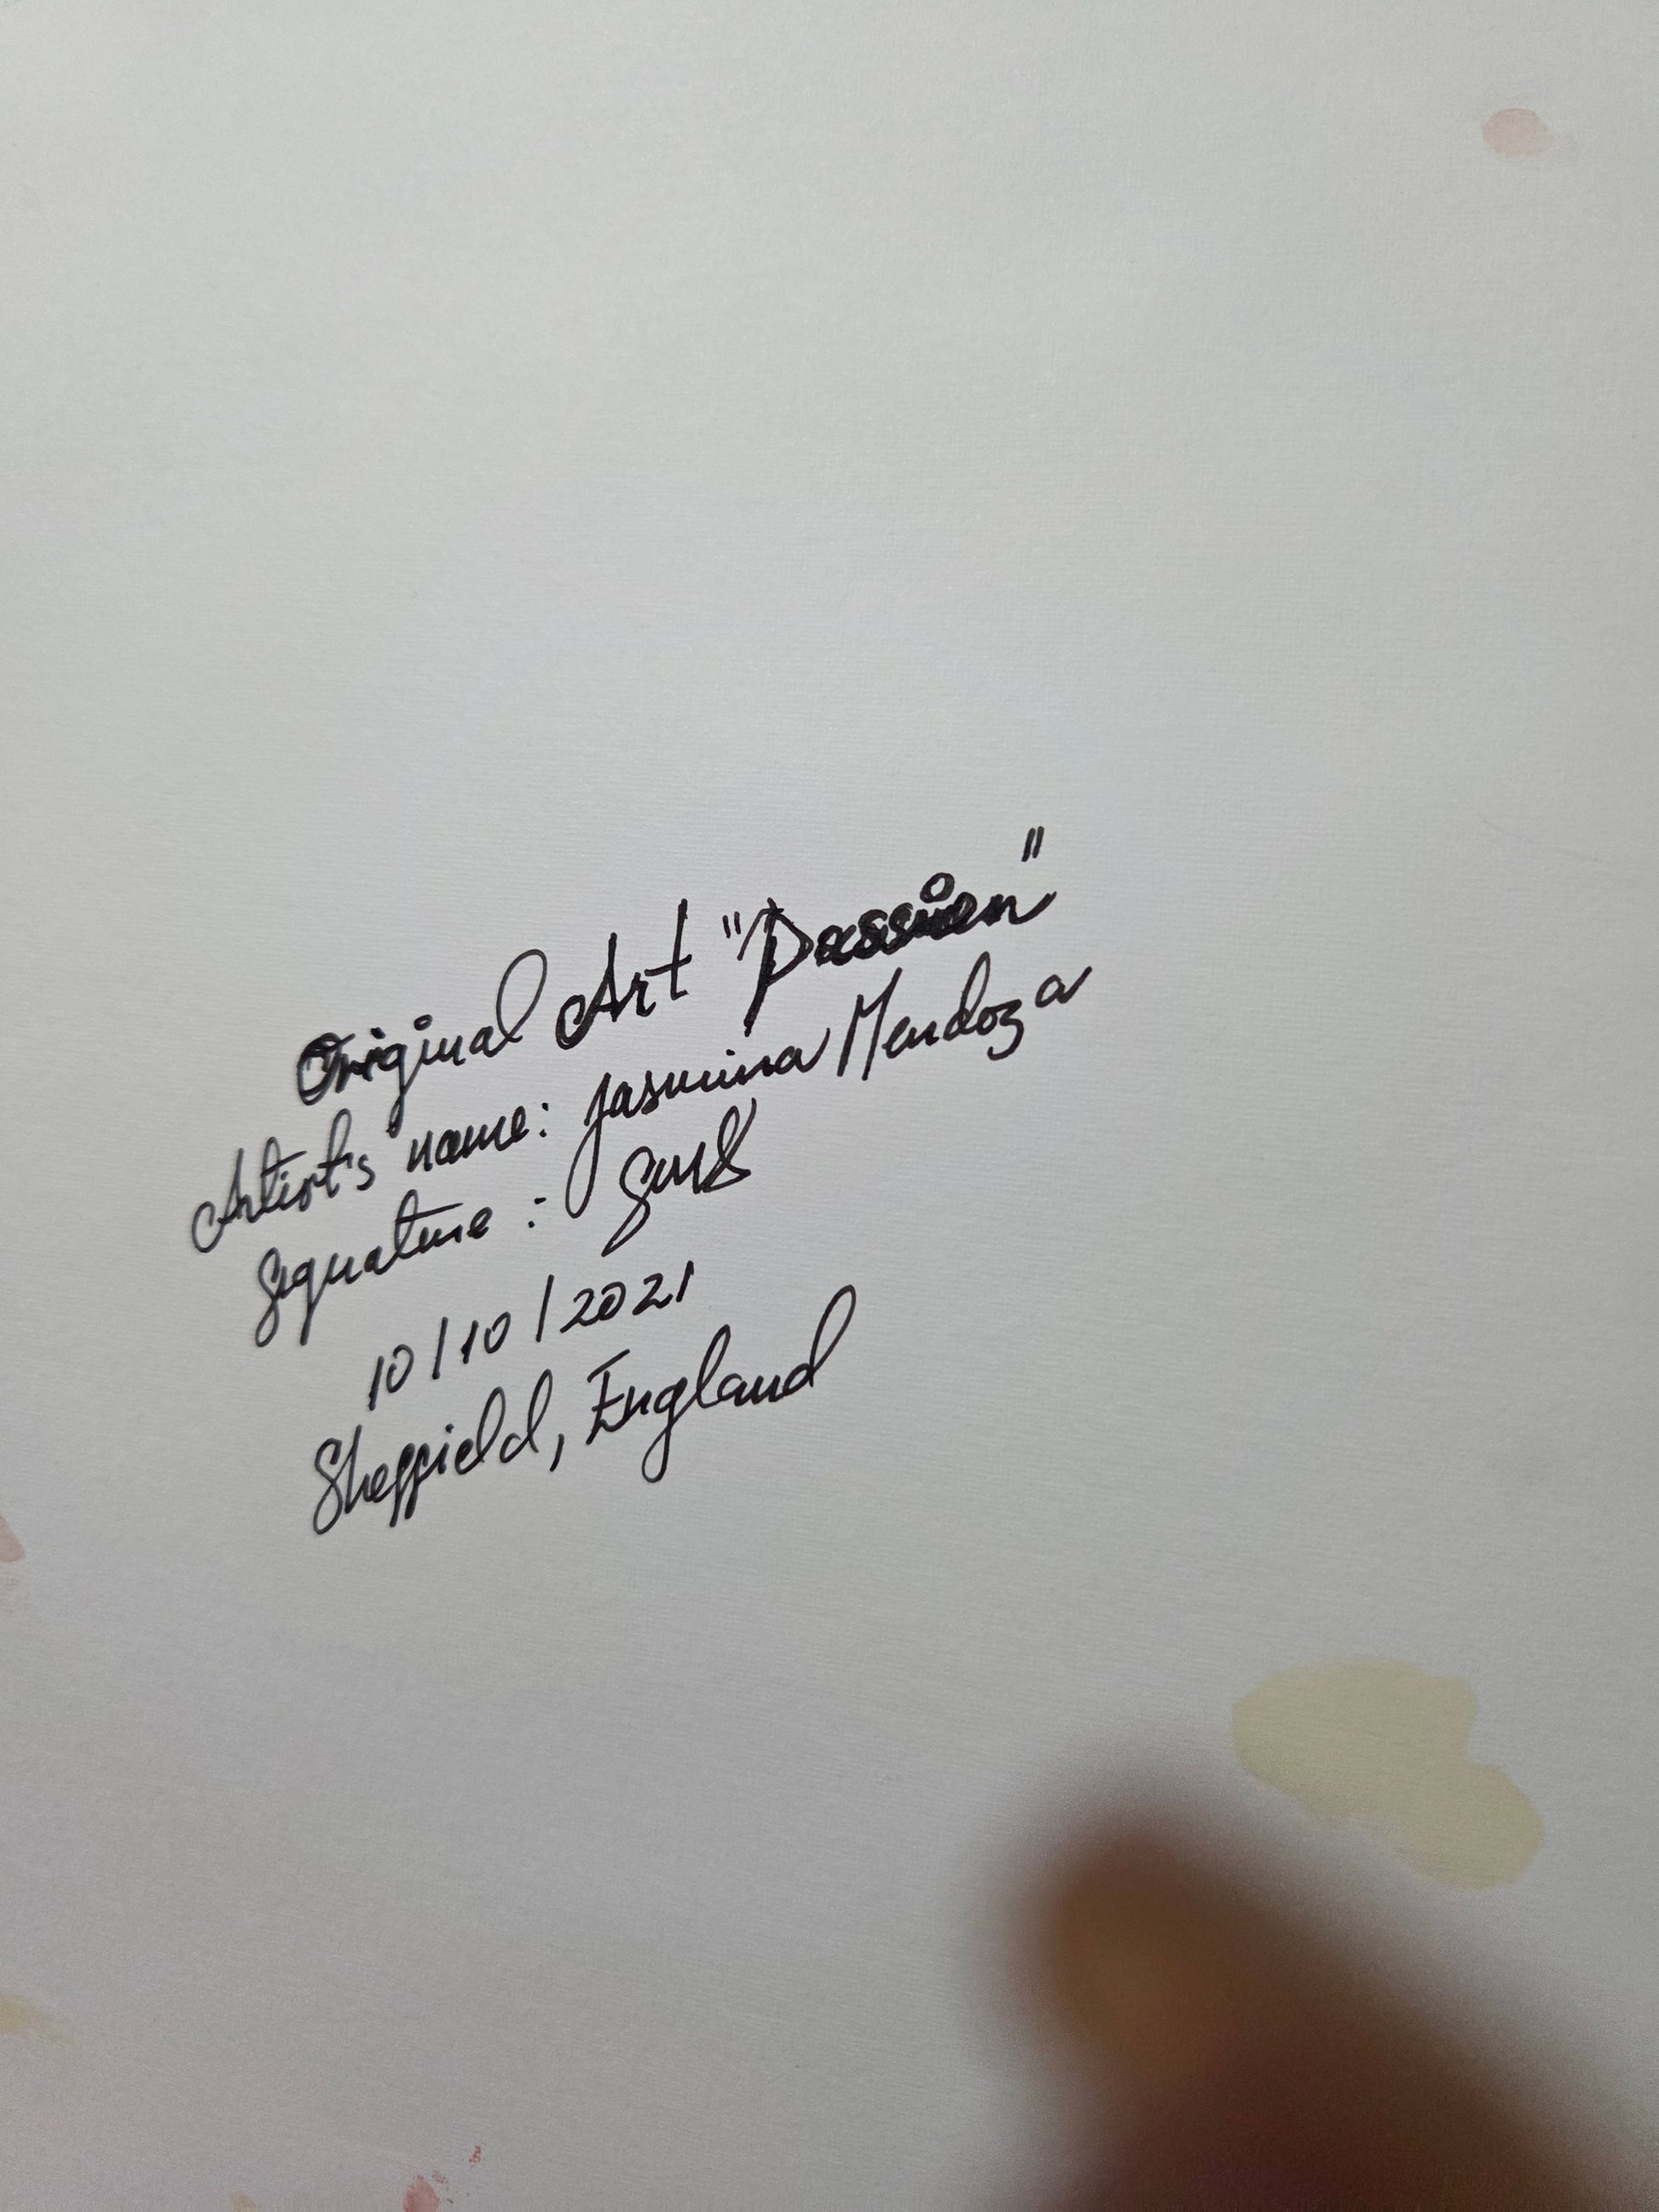 Original Art "Passion"
Artist's name: Jasmina Mendoza
Signature:
10/10/2021
Sheffield, England